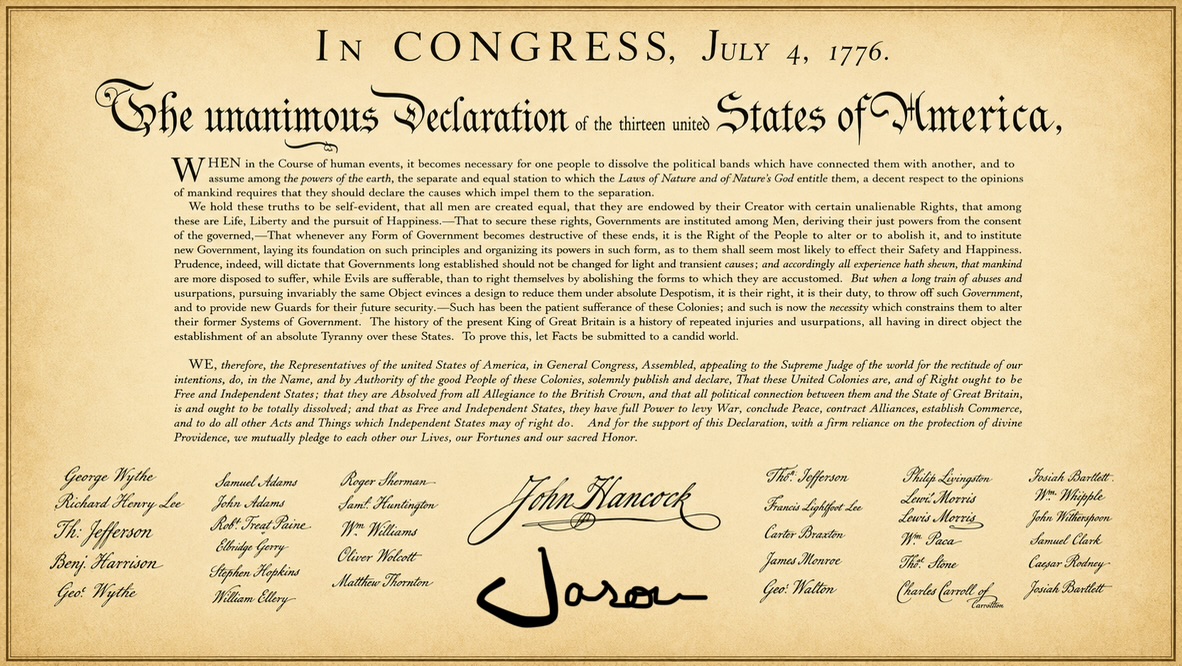 IN CONGRESS, JULY 4, 1776.
The unanimous Declaration of the thirteen united States of America,
WHEN in the Course of human events, it becomes necessary for one people to dissolve the political bands which have connected them with another, and to
assume among the powers of the earth, the separate and equal station to which the Laws of Nature and of Nature's God entitle them, a decent respect to the opinions
of mankind requires that they should declare the causes which impel them to the separation.
We hold these truths to be self-evident, that all men are created equal, that they are endowed by their Creator with certain unalienable Rights, that among
these are Life, Liberty and the pursuit of Happiness.—That to secure these rights, Governments are instituted among Men, deriving their just powers from the consent
of the governed,—That whenever any Form of Government becomes destructive of these ends, it is the Right of the People to alter or to abolish it, and to institute
new Government, laying its foundation on such principles and organizing its powers in such form, as to them shall seem most likely to effect their Safety and Happiness.
Prudence, indeed, will dictate that Governments long established should not be changed for light and transient causes; and accordingly all experience hath shewn, that mankind
are more disposed to suffer, while Evils are sufferable, than to right themselves by abolishing the forms to which they are accustomed. But when a long train of abuses and
usurpations, pursuing invariably the same Object evinces a design to reduce them under absolute Despotism, it is their right, it is their duty, to throw off such Government,
and to provide new Guards for their future security.—Such has been the patient sufferance of these Colonies; and such is now the necessity which constrains them to alter
their former Systems of Government. The history of the present King of Great Britain is a history of repeated injuries and usurpations, all having in direct object the
establishment of an absolute Tyranny over these States. To prove this, let Facts be submitted to a candid world.
WE, therefore, the Representatives of the united States of America, in General Congress, Assembled, appealing to the Supreme Judge of the world for the rectitude of our
intentions, do, in the Name, and by Authority of the good People of these Colonies, solemnly publish and declare, That these United Colonies are, and of Right ought to be
Free and Independent States; that they are Absolved from all Allegiance to the British Crown, and that all political connection between them and the State of Great Britain,
is and ought to be totally dissolved; and that as Free and Independent States, they have full Power to levy War, conclude Peace, contract Alliances, establish Commerce,
and to do all other Acts and Things which Independent States may of right do. And for the support of this Declaration, with a firm reliance on the protection of divine
Providence, we mutually pledge to each other our Lives, our Fortunes and our sacred Honor.
George Wythe
Richard Henry Lee
Th: Jefferson
Benj. Harrison
Geo: Wythe
Samuel Adams
John Adams
Robt Treat Paine
Elbridge Gerry
Stephen Hopkins
William Ellery
Roger Sherman
Saml. Huntington
Wm. Williams
Oliver Wolcott
Matthew Thornton
John Hancock
Jason
Thos. Jefferson
Francis Lightfoot Lee
Carter Braxton
James Monroe
Geo: Walton
Philip Livingston
Lewi. Morris
Lewis Morris
Wm. Paca
Thos. Stone
Charles Carroll of
Carrollton
Josiah Bartlett
Wm. Whipple
John Witherspoon
Samuel Clark
Caesar Rodney
Josiah Bartlett